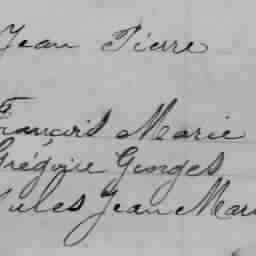 Jean Pierre
François Marie
Grégoire Georges
Jules Jean Mari